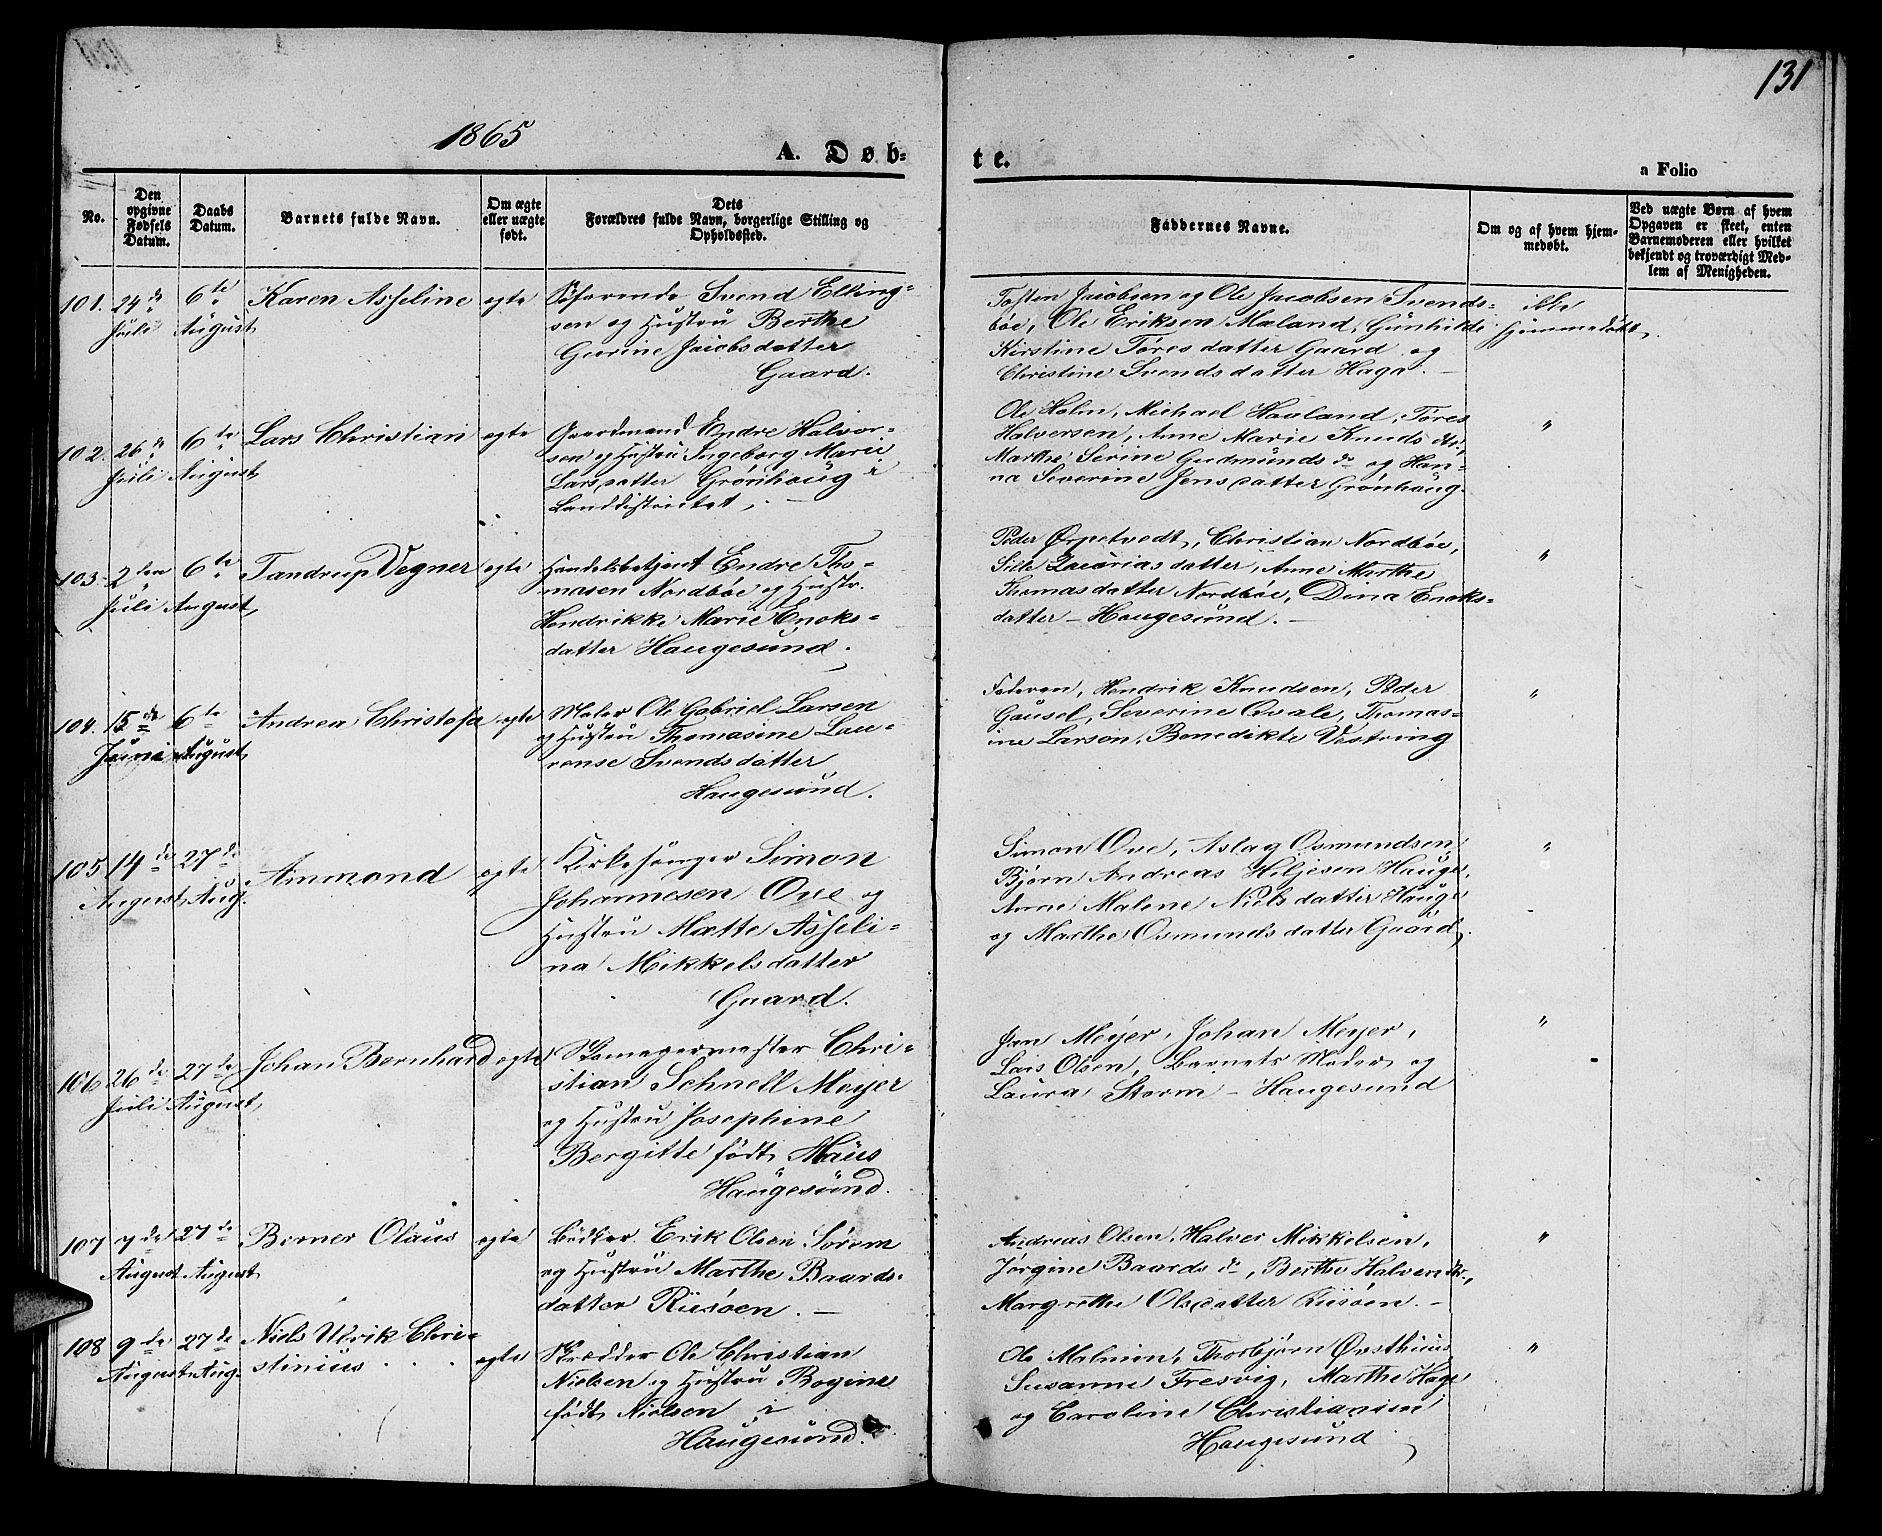 131
1865
A. Døb-
te.
a Folio
No.
Den
opgivne
Fødsels
Datum.
Daabs
Datum.
Barnets fulde Navn.
Om ægte
eller uægte
født.
Dets
Forældres fulde Navn, borgerlige Stilling og
Opholdssted.
Faddernes Navne.
Om og af hvem hjem-
medøbt.
Ved uægte Børn af hvem
Opgaven er skeet, enten
Barnemoderen eller hvilket
bekjendt og troværdigt Med-
lem af Menigheden.
101. 24de Juli
6te August
Karen Asseline
egte
Søfarende Svend Elling-
sen og Hustru Berthe
Gurine Jacobsdatter
Gaard.
Tosten Jacobsen og Ole Jacobsen Svends-
bøe, Ole Eriksen Maland, Gunhilde
Kirstine Tøresdatter Gaard og
Christine Svendsdatter Haga.
ikke
hjemmedøbt.
102. 26de Juli
6te August
Lars Christian
egte
Gaardmand Endre Halvor-
sen og Hustru Ingeborg Marie
Larsdatter Grønhoug i
Landdistriktet.
Ole Holm, Michael Hauland, Tøres
Halversen, Anne Marie Knudsdtr,
Marthe Serine Gudmunds dr og Han-
na Severine Jensdatter Grønhoug.
"
103. 2den Juli
6te August
Tandrup Vegner
egte
Handelsbetjent Endre Tho-
masen Nordbøe og Hustr.
Hendrikke Marie Enoks-
datter Haugesund.
Peder Christian Nordbøe,
Sille Zacariasdatter, Anne Marthe
Thomasdatter Nordbøe, Dina Enoks-
datter – Haugesund.
"
104. 15de Juni
6te August
Andrea Christofa
egte
Maler Ole Gabriel Larsen
og Hustru Thomasine Lau-
rense Svendsdatter
Haugesund.
Faderen, Hendrik Knudsen, Peder
Gausel, Severine Qvale, Thomas-
ine Larsen, Benedikte Vestring
"
105 14de August
27de Aug.
Ammond
egte
Kirkesanger Simon
Johannesen Ove og
Hustru Mætte Asseli-
na Mikkelsdatter
Gaard.
Simon Ove, Aslag Osmundsen,
Bjørn Andreas Hiljesen Hauge,
Anne Malene Nielsdatter Hauge
og Marthe Osmundsdatter Gaard.
"
106 26de Juli
27de August
Johan Bernhard
egte
Skomagermester Chri-
stian Schnell Meyer
og Hustru Josephine
Bergitte født Maus
Haugesund.
Jan Meyer, Johan Meyer,
Lars Olsen, Barnets Moder og
Laura Storm – Haugesund
"
107 7de August
27de August
Berner Olaus
egte
Bødker Erik Olsen Sørem
og Hustru Marthe Baards-
datter Risøen.
Andreas Olsen, Halver Mikkelsen,
Jørgine Baards dr, Berthe Halversdtr,
Margrethe Olsdatter Risøen.
"
108 9de August
27de Aug.
Niels Ulrik Chri-
stinius
egte
Skrædder Ole Christian
Nielsen og Hustru Rogine
født Nielsen i
Haugesund.
Ole Malmin, Thorbjørn Østhuus
Susanne Tresvig, Marthe Hage
og Caroline Christiansen
Haugesund
"